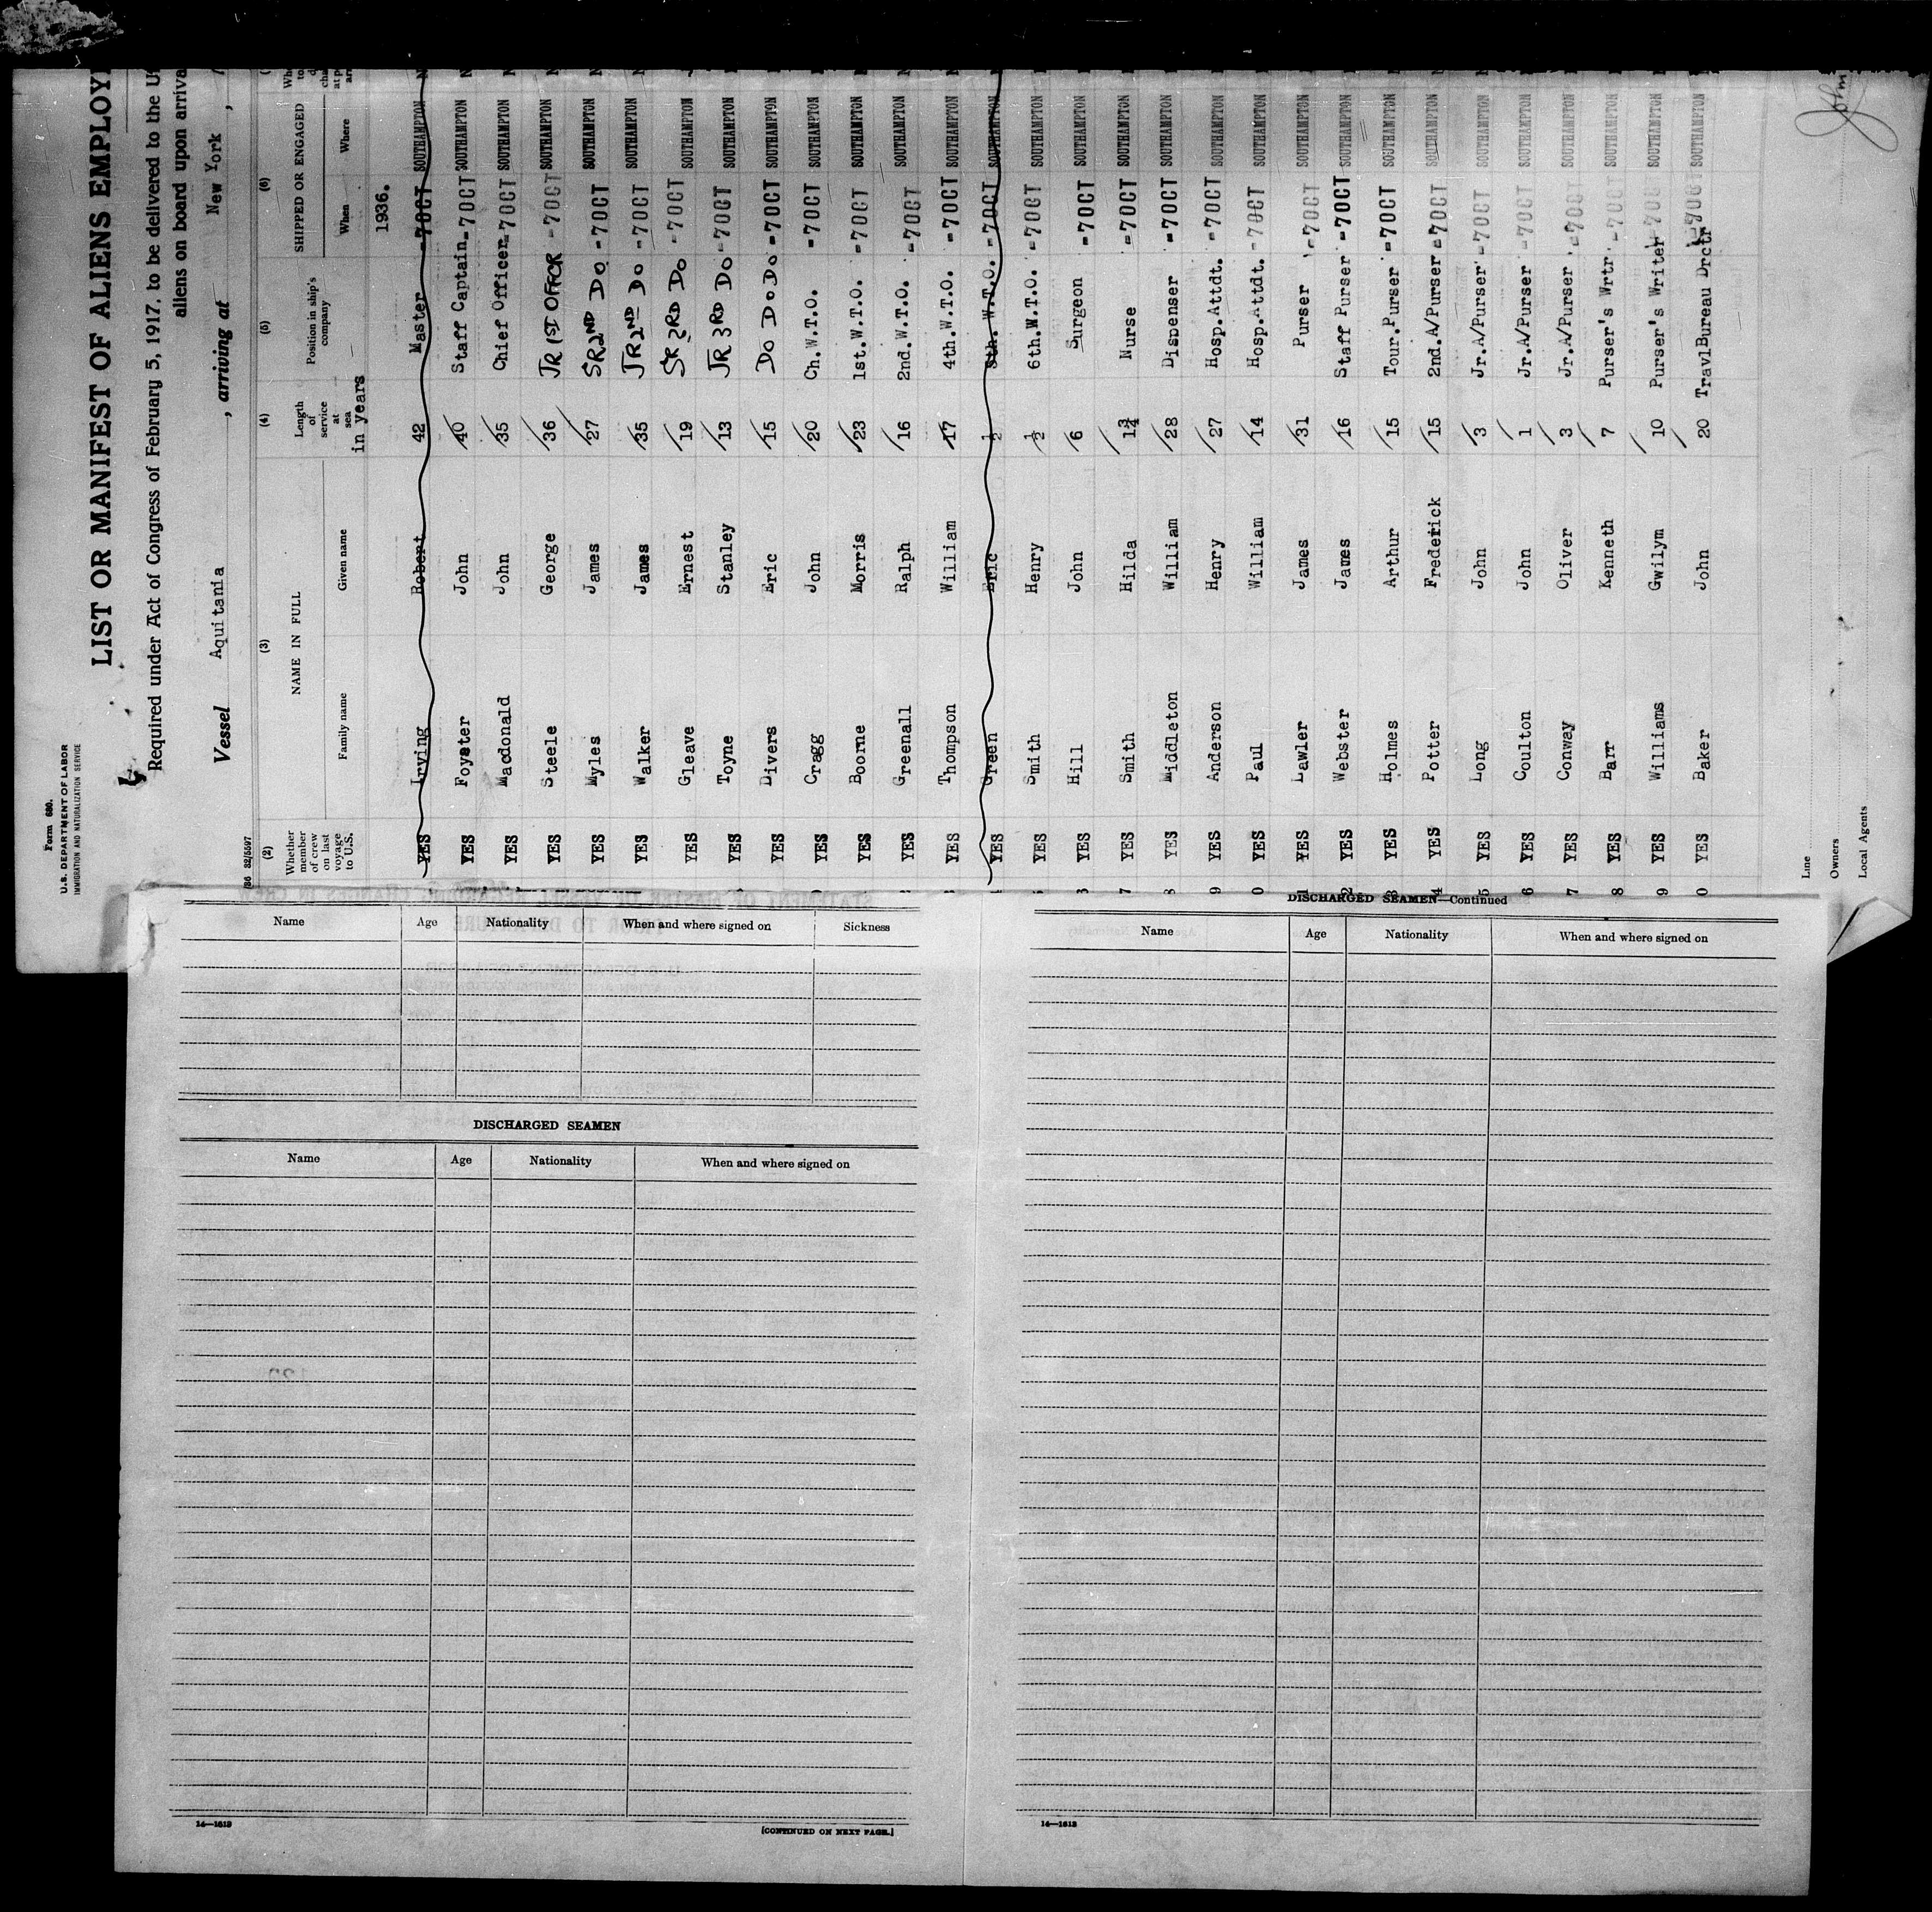 Form 680.
U.S. DEPARTMENT OF LABOR
IMMIGRATION AND NATURALIZATION SERVICE
LIST OR MANIFEST OF ALIENS EMPLOY
Required under Act of Congress of February 5, 1917, to be delivered to the
aliens on board upon arriva
Vessel Aquitania , arriving at New York ,
36 32/5597
(2) (3) (4) (5) (6)
Whether member of crew on last voyage to U.S. NAME IN FULL Length of service at sea in years Position in ship's company SHIPPED OR ENGAGED
Family name Given name When Where
1936.
YES Irving Robert 42 Master -7OCT SOUTHAMPTON
YES Foyster John 40 Staff Captain -7OCT SOUTHAMPTON
YES Macdonald John 35 Chief Officer -7OCT SOUTHAMPTON
YES Steele George 36 JR 1ST OFFCR -7OCT SOUTHAMPTON
YES Myles James 27 SR 2ND DO -7OCT SOUTHAMPTON
YES Walker James 35 JR 2ND DO -7OCT SOUTHAMPTON
YES Gleave Ernest 19 SR 3RD DO -7OCT SOUTHAMPTON
YES Toyne Stanley 13 JR 3RD DO -7OCT SOUTHAMPTON
YES Divers Eric 15 DO DO DO -7OCT SOUTHAMPTON
YES Cragg John 20 Ch.W.T.O. -7OCT SOUTHAMPTON
YES Boorne Morris 23 1st.W.T.O. -7OCT SOUTHAMPTON
YES Greenall Ralph 16 2nd.W.T.O. -7OCT SOUTHAMPTON
YES Thompson William 17 4th.W.T.O. -7OCT SOUTHAMPTON
YES Green Eric ½ 5th.W.T.O. -7OCT SOUTHAMPTON
YES Smith Henry ½ 6th.W.T.O. -7OCT SOUTHAMPTON
YES Hill John 6 Surgeon -7OCT SOUTHAMPTON
7 YES Smith Hilda 1¾ Nurse -7OCT SOUTHAMPTON
8 YES Middleton William 28 Dispenser -7OCT SOUTHAMPTON
9 YES Anderson Henry 27 Hosp.Attdt. -7OCT SOUTHAMPTON
0 YES Paul William 14 Hosp.Attdt. -7OCT SOUTHAMPTON
1 YES Lawler James 31 Purser -7OCT SOUTHAMPTON
2 YES Webster James 16 Staff Purser -7OCT SOUTHAMPTON
3 YES Holmes Arthur 15 Tour.Purser -7OCT SOUTHAMPTON
4 YES Potter Frederick 15 2nd.A/Purser -7OCT SOUTHAMPTON
5 YES Long John 3 Jr.A/Purser -7OCT SOUTHAMPTON
6 YES Coulton John 1 Jr.A/Purser -7OCT SOUTHAMPTON
7 YES Conway Oliver 3 Jr.A/Purser -7OCT SOUTHAMPTON
8 YES Barr Kenneth 7 Purser's Wrtr. -7OCT SOUTHAMPTON
9 YES Williams Gwilym 10 Purser's Writer -7OCT SOUTHAMPTON
0 YES Baker John 20 TravlBureau Drctr -7OCT SOUTHAMPTON
Line
Owners
Local Agents
Name Age Nationality When and where signed on Sickness
DISCHARGED SEAMEN
Name Age Nationality When and where signed on
14—1613
[CONTINUED ON NEXT PAGE.]
DISCHARGED SEAMEN—Continued
Name Age Nationality When and where signed on
14—1613